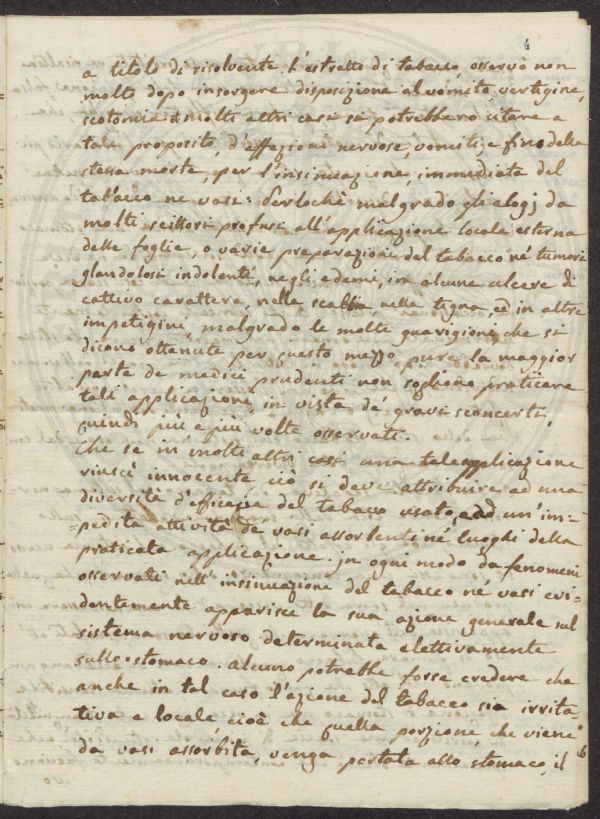 4
a titolo di risolvente l'estratto di tabacco, osservò non
molto dopo insorgere disposizione al vomito, vertigine,
scotomia &molti altri casi si potrebbero citare a
tale proposito, d'affezioni nervose, vomiti, e fino della
stessa morte, per l'insinuazione immediata del
tabacco ne vasi: Perlochè malgrado gli elogj da
molti scittori profusi all'applicazione locale esterna
delle foglie, o varie preparazione del tabacco né tumori
glandolosi indolenti, negli edemi, in alcune ulcere di
cattivo carattere, nella scabbia, nella tigna, ed in altre
impetigini, malgrado le molte guarigioni, che si
dicono ottenute per questo mezzo, pure la maggior
parte de medici prudenti non sogliono praticare
tali applicazione, in vista de' gravi sconcerti,
quindi più e più volte osservati.
Che se in molti altri casi una tale applicazione
riuscì innocente, ciò si deve attribuire ad una
diversità d'efficacia del tabacco usato, ad un'im=
=pedita attività de' vasi assorbenti né luoghi della
praticata applicazione. In ogni modo da fenomeni
osservati nell'insinuazione del tabacco né vasi evi=
dentemente apparisce la sua azione generale sul
sistema nervoso determinata elettivamente
sullo stomaco. Alcuno potrebbe forse credere che
anche in tal caso l'azione del tabacco sia irrita
tiva e locale, cioè che quella porzione che viene
da vasi assorbita, venga portata allo stomaco, il